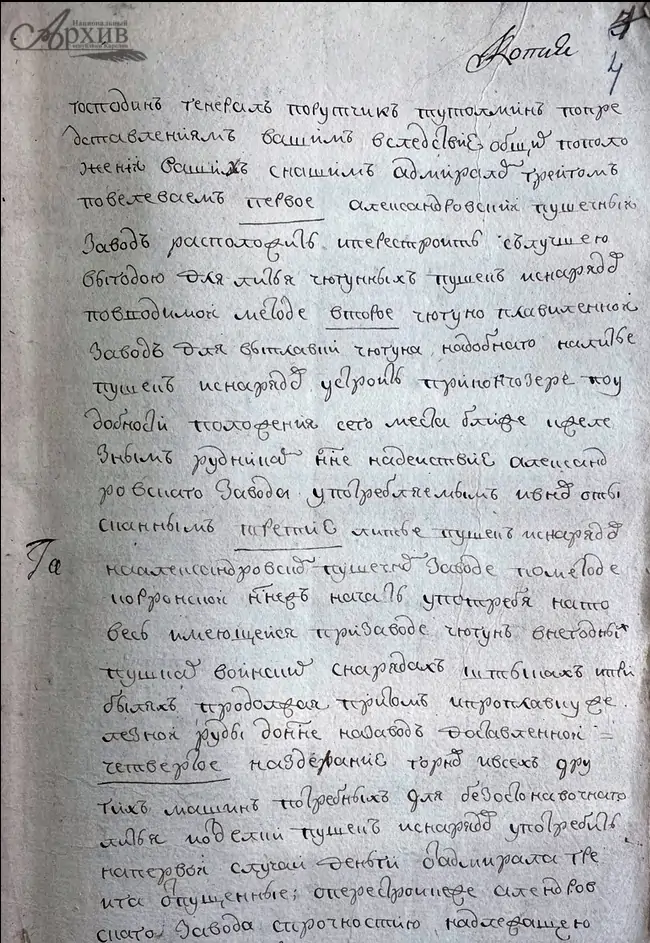 Национальный
Архив
республики Карелия
Копия
4
господинъ генералъ порутчикъ тутолминъ попре
дставлениямъ вашимъ вследствие общих пополо
жений вашихъ снашимъ адмиралом грейгомъ
повелеваемъ первое александровский пушечный
заводъ расположить иперестроить сълучшею
выгодою для литья чюгунныхъ пушекъ иснарядов
повводимой методе второе чюгуно плавиленной
заводъ для выплавки чюгуна надобнаго налитье
пушекъ иснарядов устроить прикончозере поу
добности положения сего места ближе кжеле
знымъ рудникам ныне надействие александ
ровскаго завода употребляемымъ ивновь оты
сканнымъ третие литье пушекъ иснарядов
Га
наалександровском пушечном заводе пометоде
корронской ныне начать употребя нато
весь имеющейся призаводе чюгунъ внегодных
пушках воинских снарядахъ штыкахъ ипри
былях продолжая притом ипроплавку же
лезной руды доныне назаводъ доставленной =
четвертое назделание горнов ивсехъ дру
гихъ машин потребныхъ для безостановочнаго
литья иоделки пушекъ иснарядов употребить
напервой случай деньги отадмирала гре
йга отпущенные; оперестройке алендров
скаго завода строчностию надлежащею